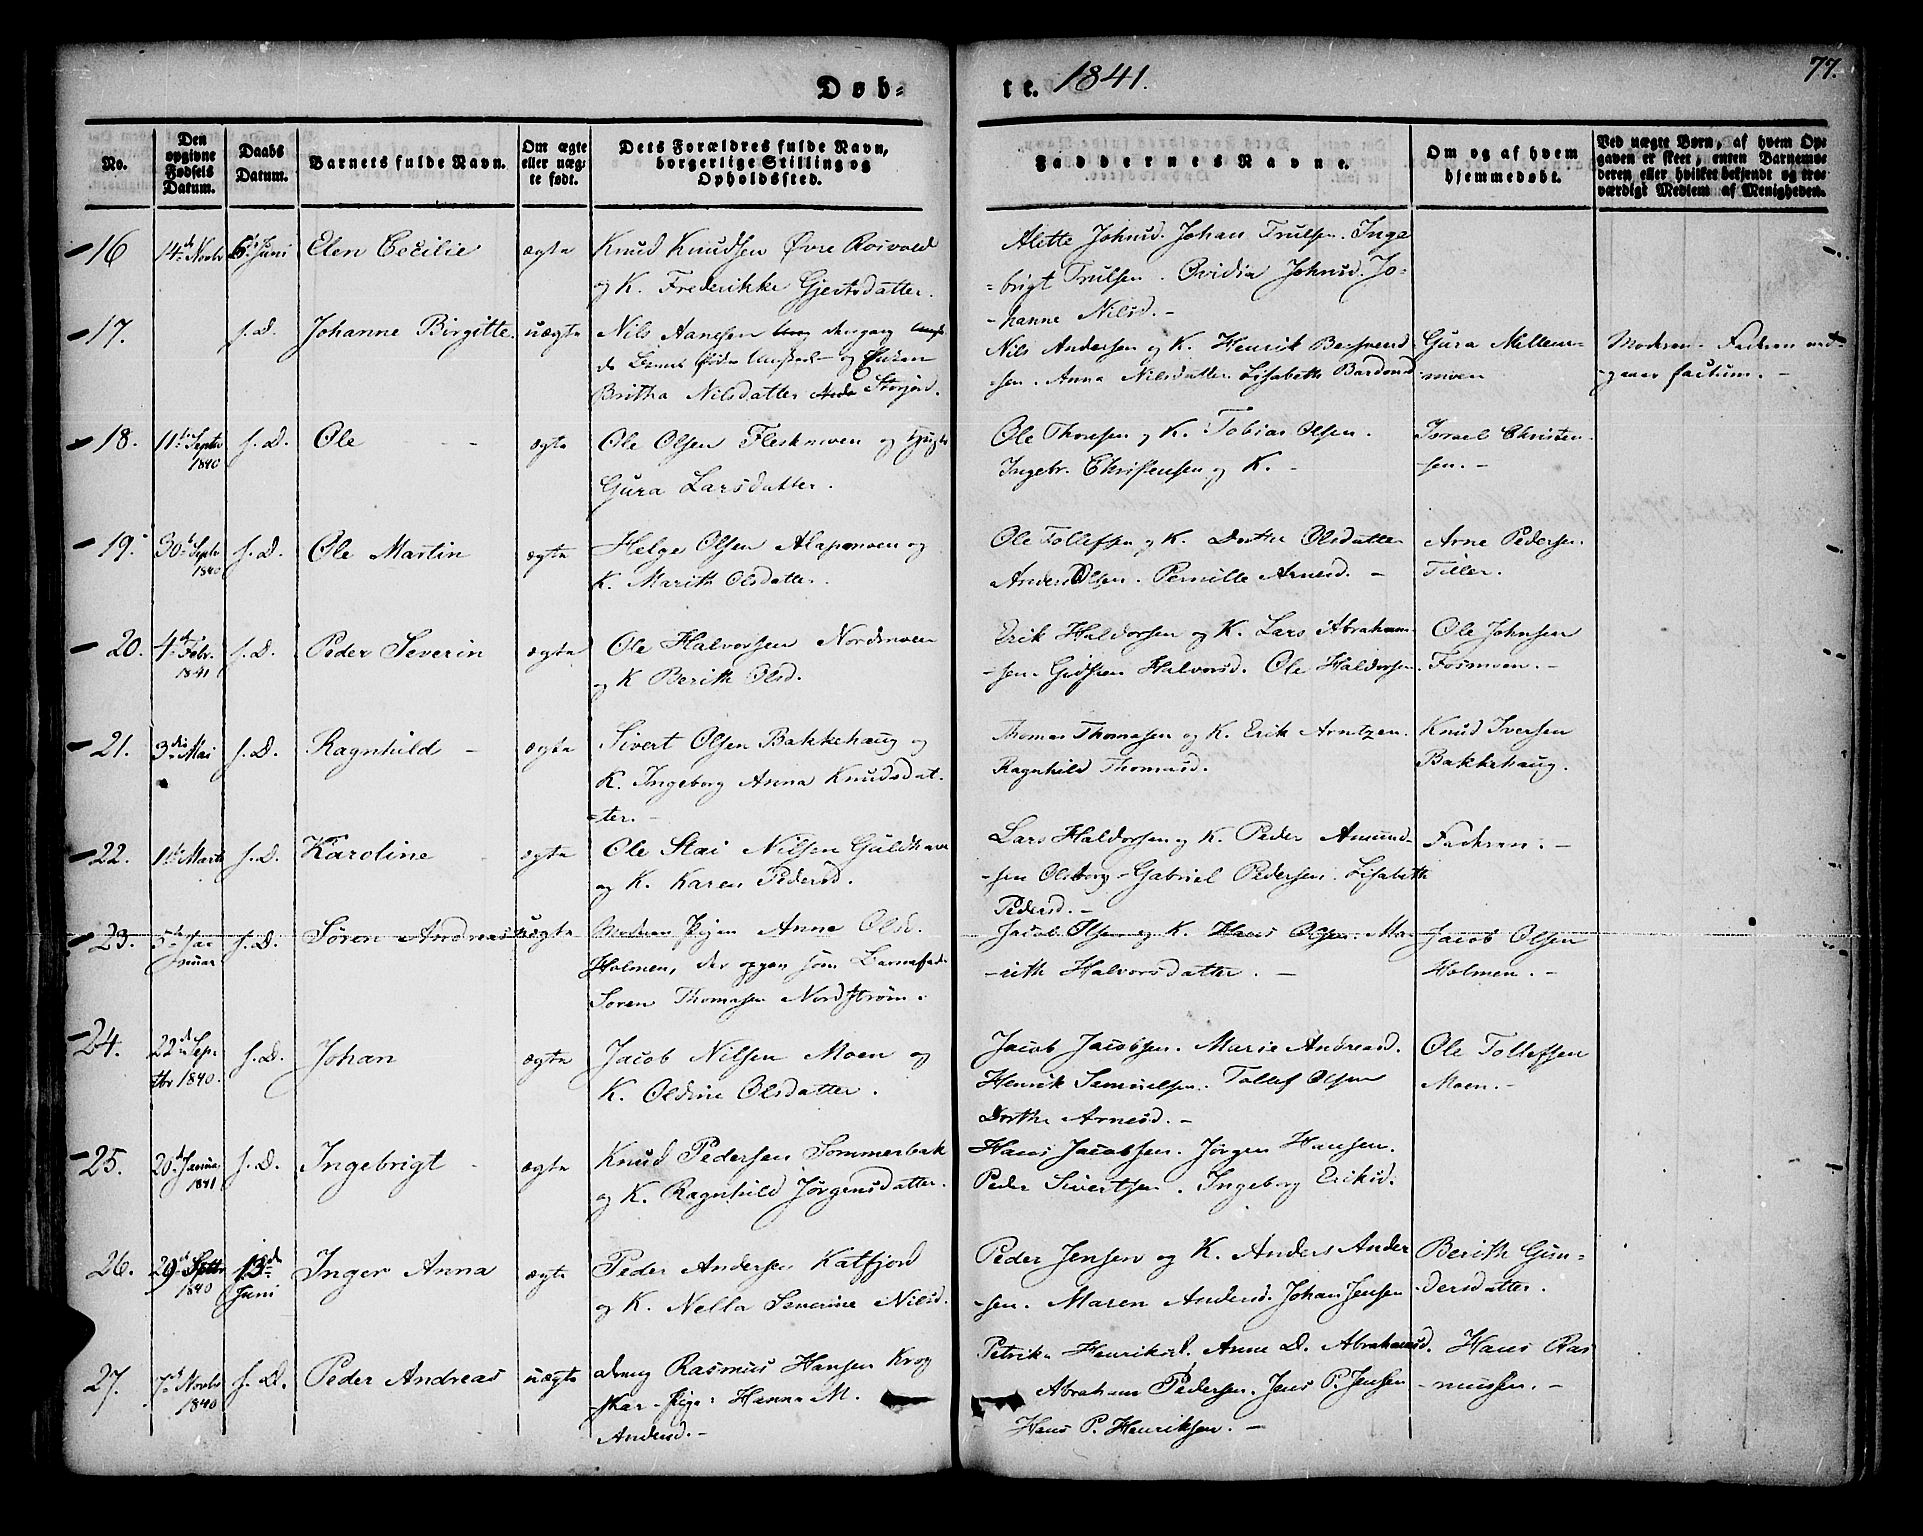 Døb-
te. 1841.
77.
No.
Den opgivne Fødsels Datum.
Daabs Datum.
Barnets fulde Navn.
Om ægte eller uæg-te født.
Dets Forældres fulde Navn, borgerlige Stilling og Opholdssted.
Faddernes Navne.
Om og af hvem hjemmedøbt.
Ved uægte Børn, af hvem Op-gaven er skeet, enten Barnemo-deren eller hvilket bekjendt og tro-værdigt Medlem af Menigheden.
16 14de Novbr 6te Juni Elen Cecilie ægte Knud Knudsen Øvre Roivold
og K. Frederikke Gjertsdatter.
Alette Johnsd. Johan Trulsen. Inge
=brigt Trulsen. Ovidia Johnsd. Jo-
-hanne Nilsd. -
17. s. D. Johanne Birgitte. uægte Nils Aanesen
Britha Nilsdatter Storjord.
Nils Andersen og K. Henrik
-sen. Anna Nilsdatter. Lisabeth Bardonsd
Gura Mellem-
moen
Moderen. Faderen ved-
-gaaer factum. -
18. 11te Septbr 1840 s. D. Ole ægte Ole Olsen Fleskmoen og
Gura Larsdatter.
Ole Thomsen og K. Tobias Olsen.
Ingebr. Christensen og K. -
Israel Christen-
sen. -
19. 30te Septbr 1840 s. D. Ole Martin ægte Helge Olsen Alapmoen og
K. Marith Olsdatter.
Ole Tollefsen og K. Dorthe Olsdatter
Anders Olsen. Pernille Arnesd. -
Arne Pedersen
Tiller.
20. 4de Febr. 1841 s. D. Peder Severin ægte Ole Halvorsen Nordmoen
og K Berith Olsd.
Erik Haldorsen og K. Lars Abraham-
-sen. Halvorsd. Ole Haldorsen
Ole Johnsen
Fosmoen. -
21. 3die Mai s. D. Ragnhild - ægte Sivert Olsen Bakkehaug og
K. Ingeborg Anna Knudsdat-
=ter. -
Thomas Thomasen og K. Erik Arntzen.
Ragnhild Thomasd.
Knud Iversen
Bakkehaug.
22. 11te Marts s. D. Karoline ægte Ole Stai Nilsen Guldhav
og K. Karen Pedersd.
Lars Haldorsen og K. Peder Amund-
-sen Olsborg - Gabriel Pedersen. Lisabeth
Pedersd. -
Faderen. -
23. 5te Ja-
nuar s. D. Søren Andreas uægte Moderen Pigen Anne Olsd.
Holmen, der opgav som Barnefad.
Søren Thomasen Nordstrøm.
Jacob Olsen og K. Hans Olsen. Ma-
-rith Halvorsdatter. -
Jacob Olsen
Holmen. -
24. 22de Sep-
tbr 1840. s. D. Johan ægte Jacob Nilsen Moen og
K. Oldine Olsdatter.
Jacob Jacobsen. Marie Andreasd.
Henrik Samuelsen. Tollef Olsen
Dorthe Arnesd. -
Ole Tollefsen
Moen. -
25. 20de Janua 1841 s. D. Ingebrigt - ægte Knud Pedersen Sommerbak
og K. Ragnhild Jørgensdatter.
Hans Jacobsen. Jørgen Hansen.
Peder Sivertsen. Ingeborg Eriksd.
26. 29de Septbr 1840 13de
Juni Inger Anna ægte Peder Andersen Katfjord
og K. Nella Severine Nilsd.
Peder Jensen og K. Anders Ander
-sen. Maren Andersd. Johan Jensen
Berith Gun-
-dersdatter.
27. 7de Novbr 1840 s. D. Peder Andreas uægte Dreng Rasmus Hansen Krog
Pige: Hanna M.
Andersd. -
Petrik. Henriksd. Anne D. Abrahamsd.
Abraham Pedersen. Jens P. Jensen
Hans P. Henriksen. -
Hans Ras
-mussen. -